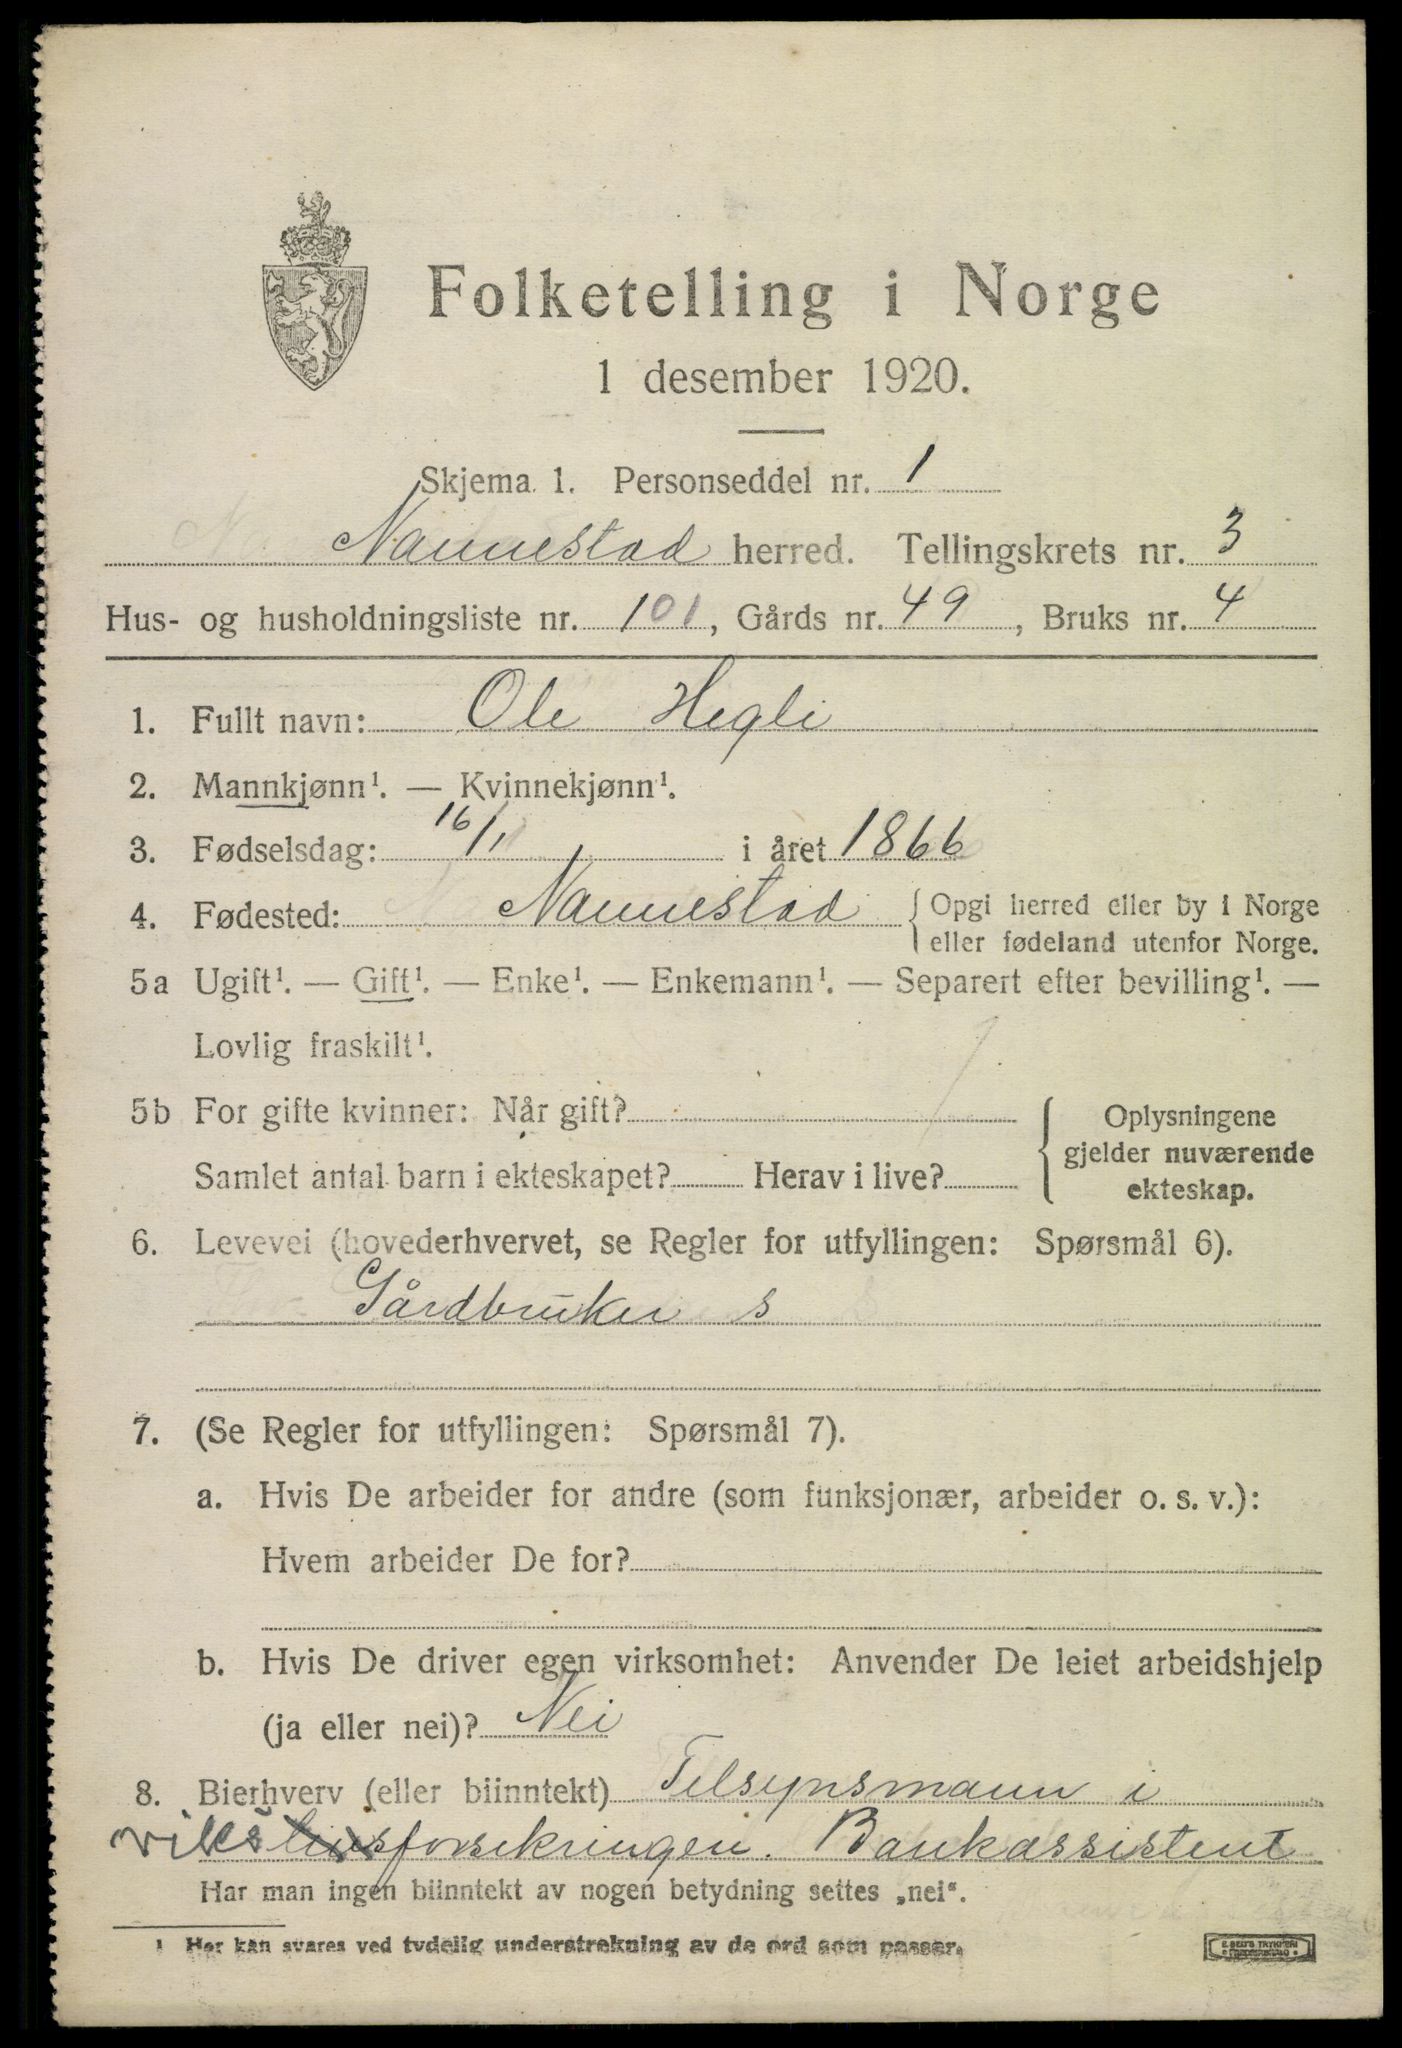 Folketelling i Norge
1 desember 1920.
Skjema 1. Personseddel nr. 1
Nannestad herred. Tellingskrets nr. 3
Hus- og husholdningsliste nr. 101, Gårds nr. 49, Bruks nr. 4
1. Fullt navn: Ole Hegli
2. Mannkjønn¹. — Kvinnekjønn¹.
3. Fødselsdag: 16/1 i året 1866
4. Fødested: Nannestad { Opgi herred eller by i Norge
eller fødeland utenfor Norge.
5a Ugift¹. — Gift¹. — Enke¹. — Enkemann¹. — Separert efter bevilling¹. —
Lovlig fraskilt¹.
5b For gifte kvinner: Når gift?
Samlet antal barn i ekteskapet? Herav i live?
{ Oplysningene
gjelder nuværende
ekteskap.
6. Levevei (hovederhvervet, se Regler for utfyllingen: Spørsmål 6).
Gårdbruker s
7. (Se Regler for utfyllingen: Spørsmål 7).
a. Hvis De arbeider for andre (som funksjonær, arbeider o. s. v.):
Hvem arbeider De for?
b. Hvis De driver egen virksomhet: Anvender De leiet arbeidshjelp
(ja eller nei)? Nei
8. Bierhverv (eller biinntekt) Tilsynsmann i
riksforsikringen. Bankassistent
Har man ingen biinntekt av nogen betydning settes „nei“.
1 Her kan svares ved tydelig understrekning av de ord som passer.